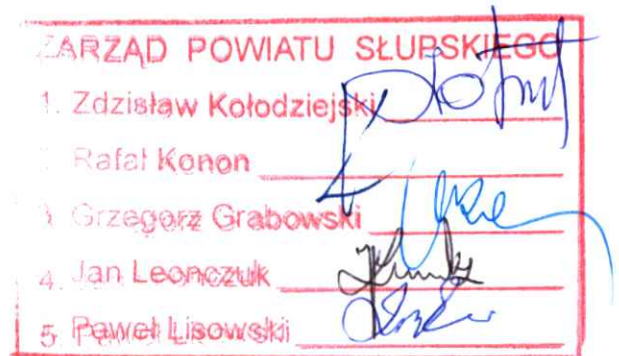 ZARZĄD POWIATU SŁUPSKIEGO
1. Zdzisław Kołodziejski
Rafał Konon
3. Grzegorz Grabowski
4. Jan Leonczuk
5. Paweł Lisowski